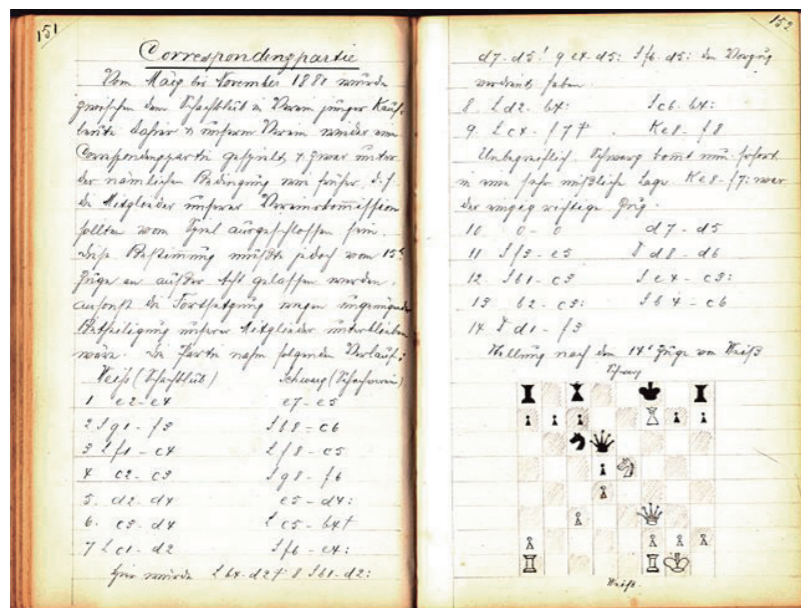 151
Correspondenzpartie
Vom März bis November 1880 wurde
zwischen dem Schachklub im Verein junger Kauf-
leute dahier & unserem Verein wieder eine
Correspondenzpartie gespielt & zwar unter
der nämlichen Bedingung wie früher, d. h.
die Mitglieder unserer Vereinskommission
sollten vom Spiel ausgeschlossen sein.
Diese Bestimmung mußte jedoch vom 15t
Zuge an außer Acht gelassen werden,
ansonst die Fortsetzung wegen ungenügender
Betheiligung unserer Mitglieder unterblieben
wäre. Die Partie nahm folgenden Verlauf:
Weiß (Schachklub) Schwarz (Schachverein)
1 e2-e4 e7-e5
2 Sg1-f3 Sb8-c6
3 Lf1-c4 Lf8-c5
4 c2-c3 Sg8-f6
5. d2-d4 e5-d4:
6. c3-d4 Lc5-b4†
7 Lc1-d2 Sf6-e4:
Hier würde Lb4-d2† 8 Sb1-d2:
152
d7-d5! 9 e4-d5: Sf6-d5: den Vorzug
verdient haben.
8. Ld2-b4: Sc6-b4:
9. Lc4-f7† Ke8-f8
Unbegreiflich. Schwarz kommt nun sofort
in eine sehr mißliche Lage. Ke8-f7: war
der einzig richtige Zug.
10 0-0 d7-d5
11 Sf3-e5 Dd8-d6
12. Sb1-c3 Se4-c3:
13. b2-c3: Sb4-c6
14. Dd1-f3
Stellung nach dem 14t Zuge von Weiß
Schwarz
Weiß.